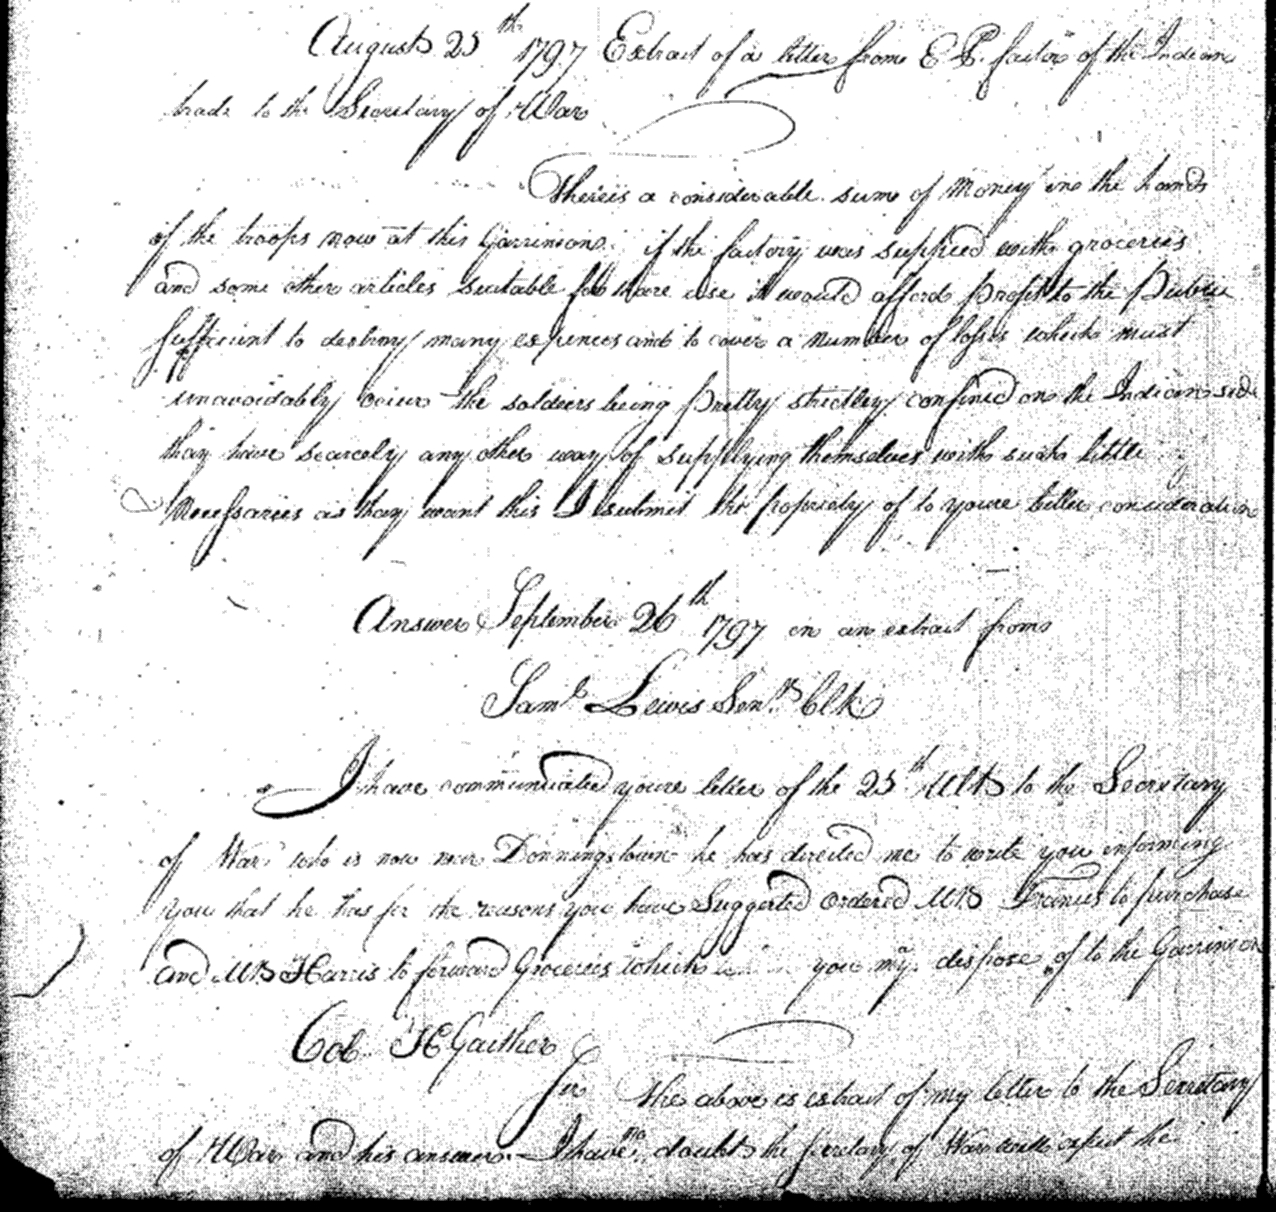 August 25th 1797 Extract of a letter from E P. factor of the Indian
trade to the Secretary of War
Thereis a considerable sum of Money in the hands
of the troops now at this Garrinson. if the factory was supplied with groceries
and some other articles suitable for thare use it would afford Profit to the Public
Sufficient to destroy many expences and to cover a number of losses which must
unavoidably occur the soldiers being Pretty strictley confined on the Indian side
thay have scarcely any other way of supplying themselves with such little
Necessaries as thay want this I submit the propriety of to youre better consideration
Answer September 26th 1797 in an extract from
Saml Lewis Senr Clk
I have communicated youre letter of the 25th Ult to the Secretary
of War who is now near Donningstown he has directed me to write you informing
you that he has for the reasons you have Suggested ordered Mr Francis to purchase
and Mr Harris to forward Groceries which you my dispose of to the Garrinson
Col. H Gaither
Sir the above is extract of my letter to the Secretary
of War and his answer. I have no doubt the secretary of War will expect the